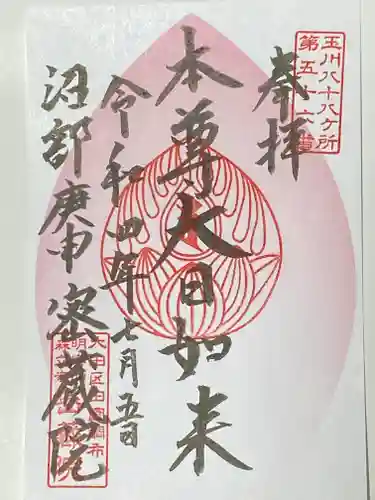 玉川八十八ケ所
第五十六番
奉拝
本尊大日如来
令和四年七月五日
沼部庚申密蔵院
大田区田園調布